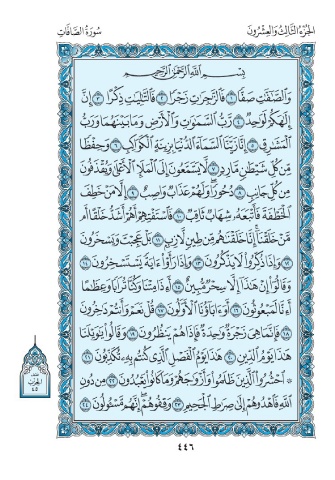 الجزء الثالث والعشرون
سورة الصافات
بِسْمِ ٱللَّهِ ٱلرَّحْمَٰنِ ٱلرَّحِيمِ
وَٱلصَّٰٓفَّٰتِ صَفًّا ١ فَٱلزَّٰجِرَٰتِ زَجْرًا ٢ فَٱلتَّٰلِيَٰتِ ذِكْرًا ٣ إِنَّ
إِلَٰهَكُمْ لَوَٰحِدٌ ٤ رَّبُّ ٱلسَّمَٰوَٰتِ وَٱلْأَرْضِ وَمَا بَيْنَهُمَا وَرَبُّ
ٱلْمَشَٰرِقِ ٥ إِنَّا زَيَّنَّا ٱلسَّمَآءَ ٱلدُّنْيَا بِزِينَةٍ ٱلْكَوَاكِبِ ٦ وَحِفْظًا
مِّن كُلِّ شَيْطَٰنٍ مَّارِدٍ ٧ لَّا يَسَّمَّعُونَ إِلَى ٱلْمَلَإِ ٱلْأَعْلَىٰ وَيُقْذَفُونَ
مِن كُلِّ جَانِبٍ ٨ دُحُورًا ۖ وَلَهُمْ عَذَابٌ وَاصِبٌ ٩ إِلَّا مَنْ خَطِفَ
ٱلْخَطْفَةَ فَأَتْبَعَهُۥ شِهَابٌ ثَاقِبٌ ١٠ فَٱسْتَفْتِهِمْ أَهُمْ أَشَدُّ خَلْقًا أَم
مَّنْ خَلَقْنَآ ۚ إِنَّا خَلَقْنَٰهُم مِّن طِينٍ لَّازِبٍۭ ١١ بَلْ عَجِبْتَ وَيَسْخَرُونَ
١٢ وَإِذَا ذُكِّرُوا۟ لَا يَذْكُرُونَ ١٣ وَإِذَا رَأَوْا۟ ءَايَةً يَسْتَسْخِرُونَ ١٤
وَقَالُوٓا۟ إِنْ هَٰذَآ إِلَّا سِحْرٌ مُّبِينٌ ١٥ أَءِذَا مِتْنَا وَكُنَّا تُرَابًا وَعِظَٰمًا
أَءِنَّا لَمَبْعُوثُونَ ١٦ أَوَءَابَآؤُنَا ٱلْأَوَّلُونَ ١٧ قُلْ نَعَمْ وَأَنتُمْ دَٰخِرُونَ
١٨ فَإِنَّمَا هِىَ زَجْرَةٌ وَٰحِدَةٌ فَإِذَا هُمْ يَنظُرُونَ ١٩ وَقَالُوا۟ يَٰوَيْلَنَا
هَٰذَا يَوْمُ ٱلدِّينِ ٢٠ هَٰذَا يَوْمُ ٱلْفَصْلِ ٱلَّذِى كُنتُم بِهِۦ تُكَذِّبُونَ ٢١
۞ ٱحْشُرُوا۟ ٱلَّذِينَ ظَلَمُوا۟ وَأَزْوَٰجَهُمْ وَمَا كَانُوا۟ يَعْبُدُونَ ٢٢ مِن دُونِ
ٱللَّهِ فَٱهْدُوهُمْ إِلَىٰ صِرَٰطِ ٱلْجَحِيمِ ٢٣ وَقِفُوهُمْ ۖ إِنَّهُم مَّسْـُٔولُونَ ٢٤
الحزب
٤٥
٤٤٦